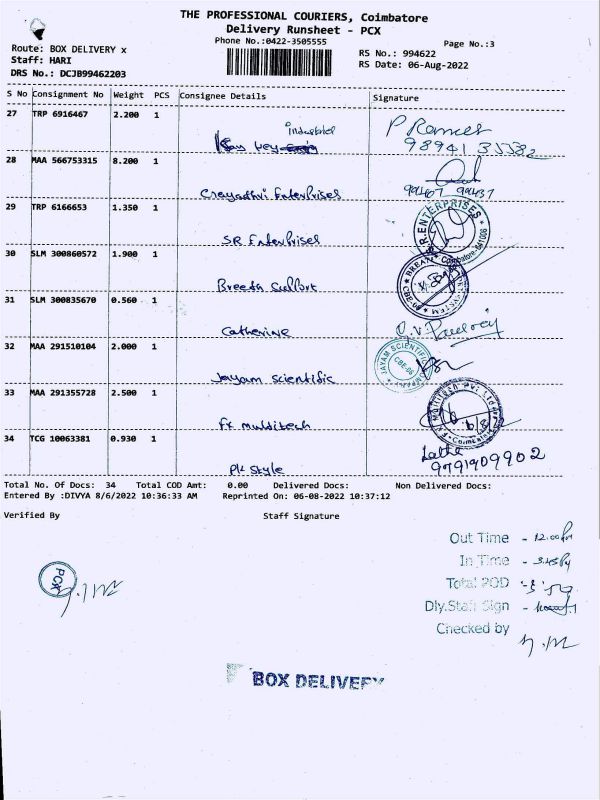 THE PROFESSIONAL COURIERS, Coimbatore
Delivery Runsheet - PCX
Phone No.:0422-3505555
Page No.:3
Route: BOX DELIVERY x
Staff: HARI
DRS No.: DCJB99462203
RS No.: 994622
RS Date: 06-Aug-2022
S No Consignment No Weight PCS Consignee Details Signature
27 TRP 6916467 2.200 1
industrial
P Rames
98941 35382
28 MAA 566753315 8.200 1
Enterprises
29 TRP 6166653 1.350 1
SR Enterprises
S.R.ENTERPRISES
Coimbatore-641006
30 SLM 300860572 1.900 1
31 SLM 300835670 0.560 1
Catherine
32 MAA 291510104 2.000 1
Jayam scientific
JAYAM SCIENTIFIC
33 MAA 291355728 2.500 1
FX multitech
34 TCG 10063381 0.930 1
PK Style
Latha
9791909902
Total No. Of Docs: 34 Total COD Amt: 0.00 Delivered Docs: Non Delivered Docs:
Entered By :DIVYA 8/6/2022 10:36:33 AM Reprinted On: 06-08-2022 10:37:12
Verified By Staff Signature
Out Time - 12.00
In Time - 3.45
Total POD
Dly.Staff Sign
Checked by
PCX
BOX DELIVERY